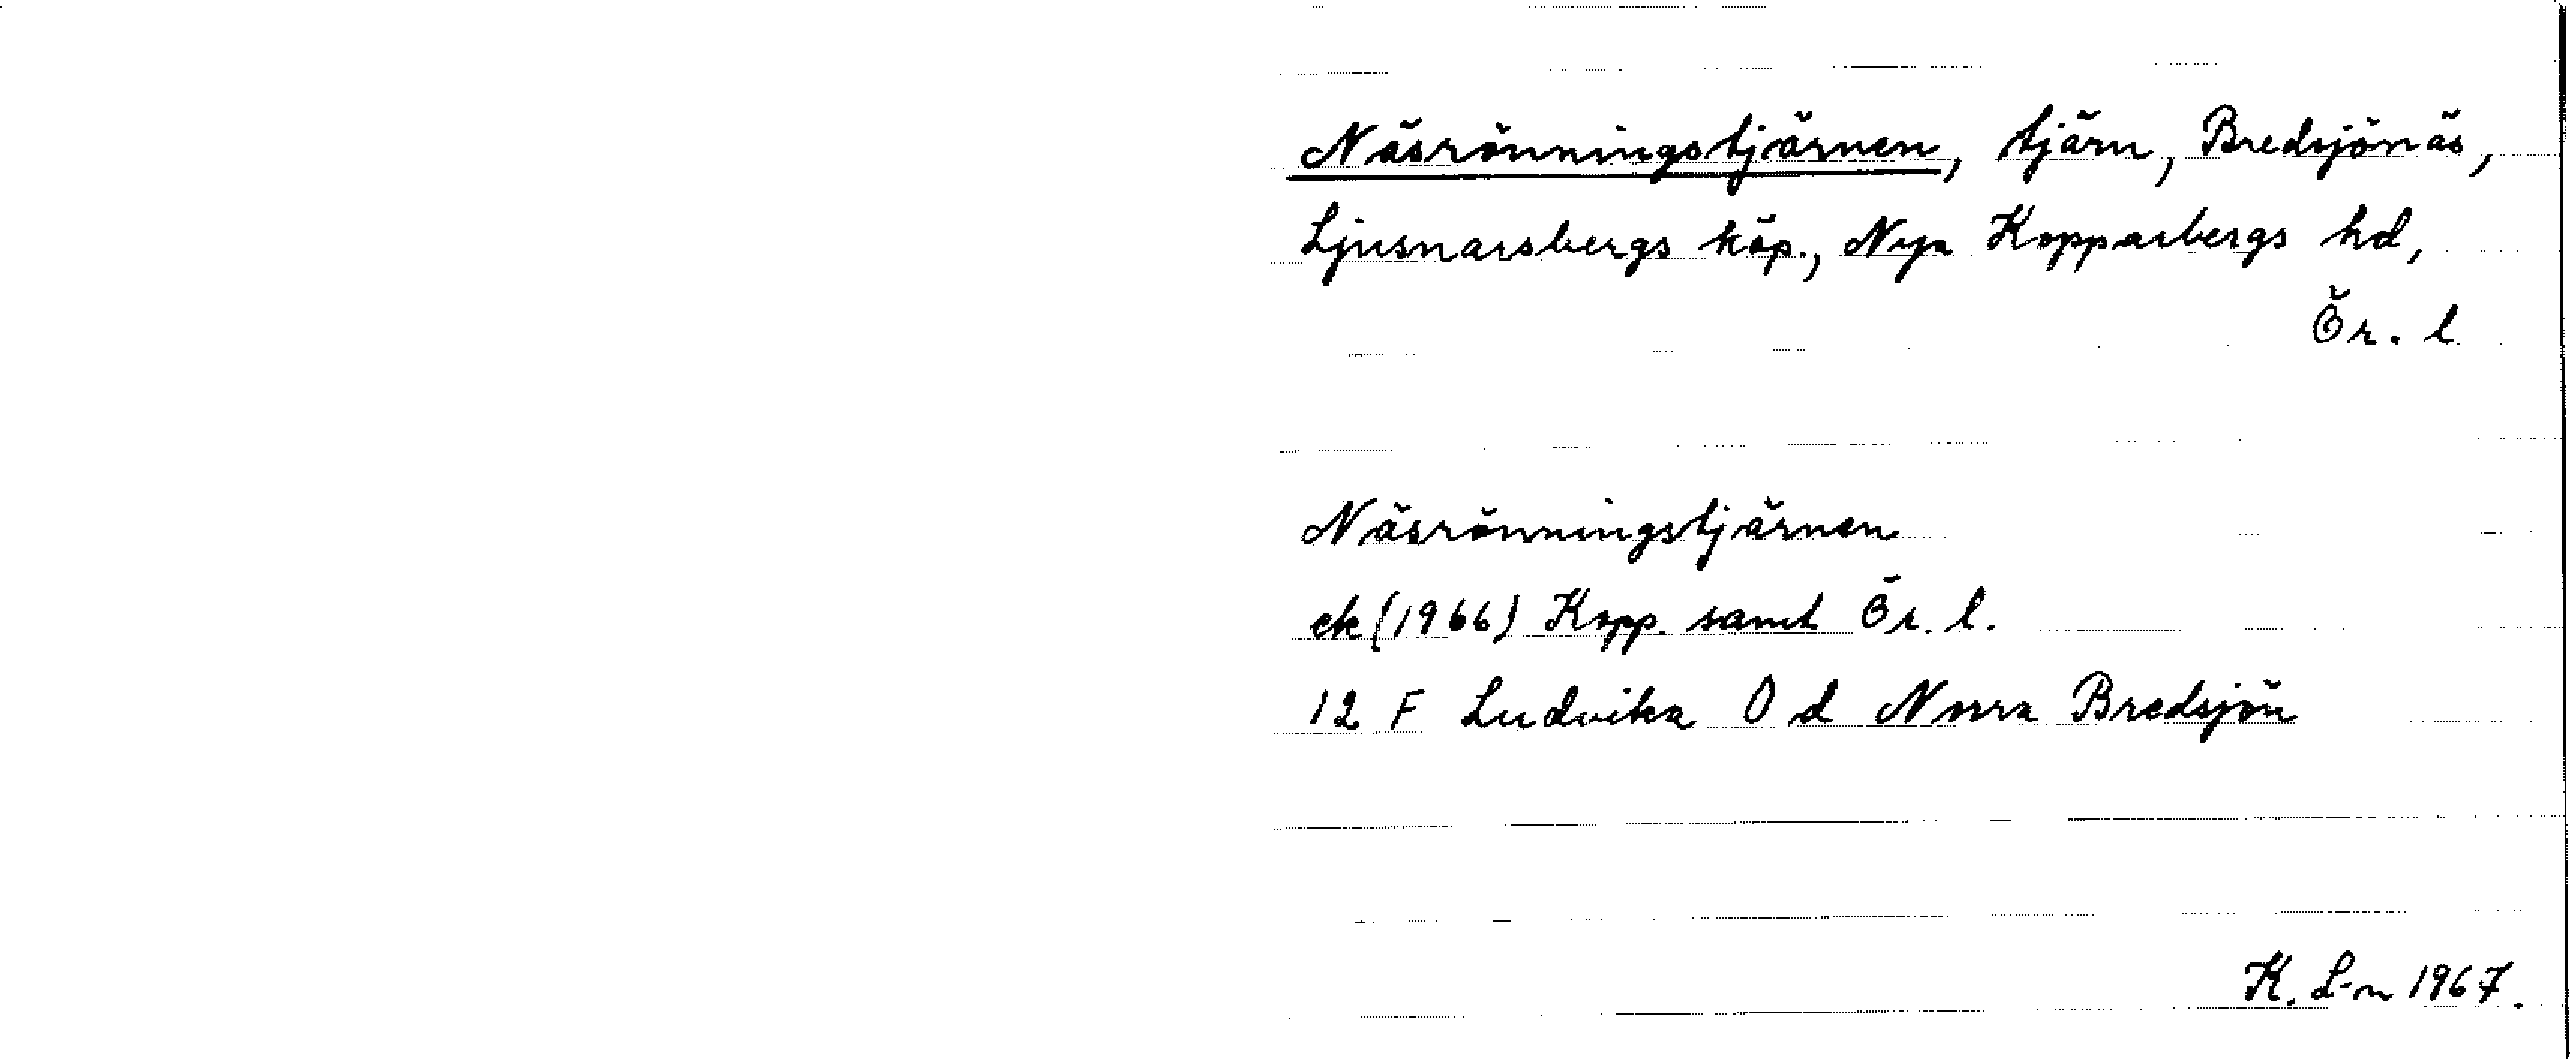 Näsrönningstjärnen, tjärn, Bredsjönäs,
Ljusnarsbergs köp., Nya Kopparbergs hd,
Ör. l
Näsrönningstjärnen
ek (1966) Kopp. samt Ör. l.
12 F Ludvika 0 d Norra Bredsjön
K. L-n 1967.